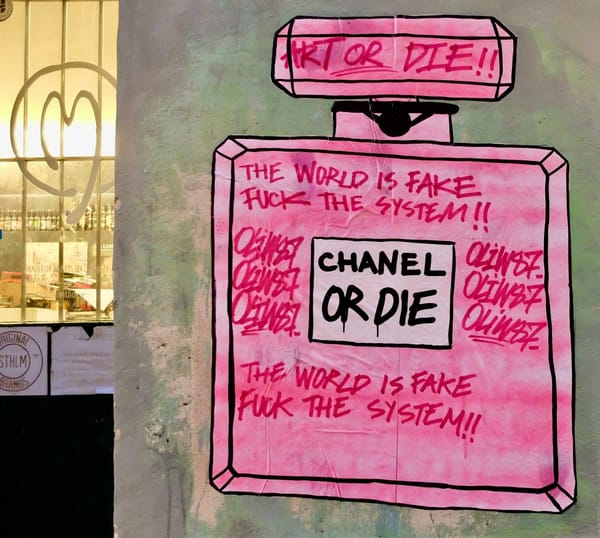 ART OR DIE!!
THE WORLD IS FAKE
FUCK THE SYSTEM!!
OLIWS7
OLIWS7
OLIWS7
CHANEL
OR DIE
OLIWS7
OLIWS7
OLIWS7
THE WORLD IS FAKE
FUCK THE SYSTEM!!
ORIGINAL
STHLM
BRANDS